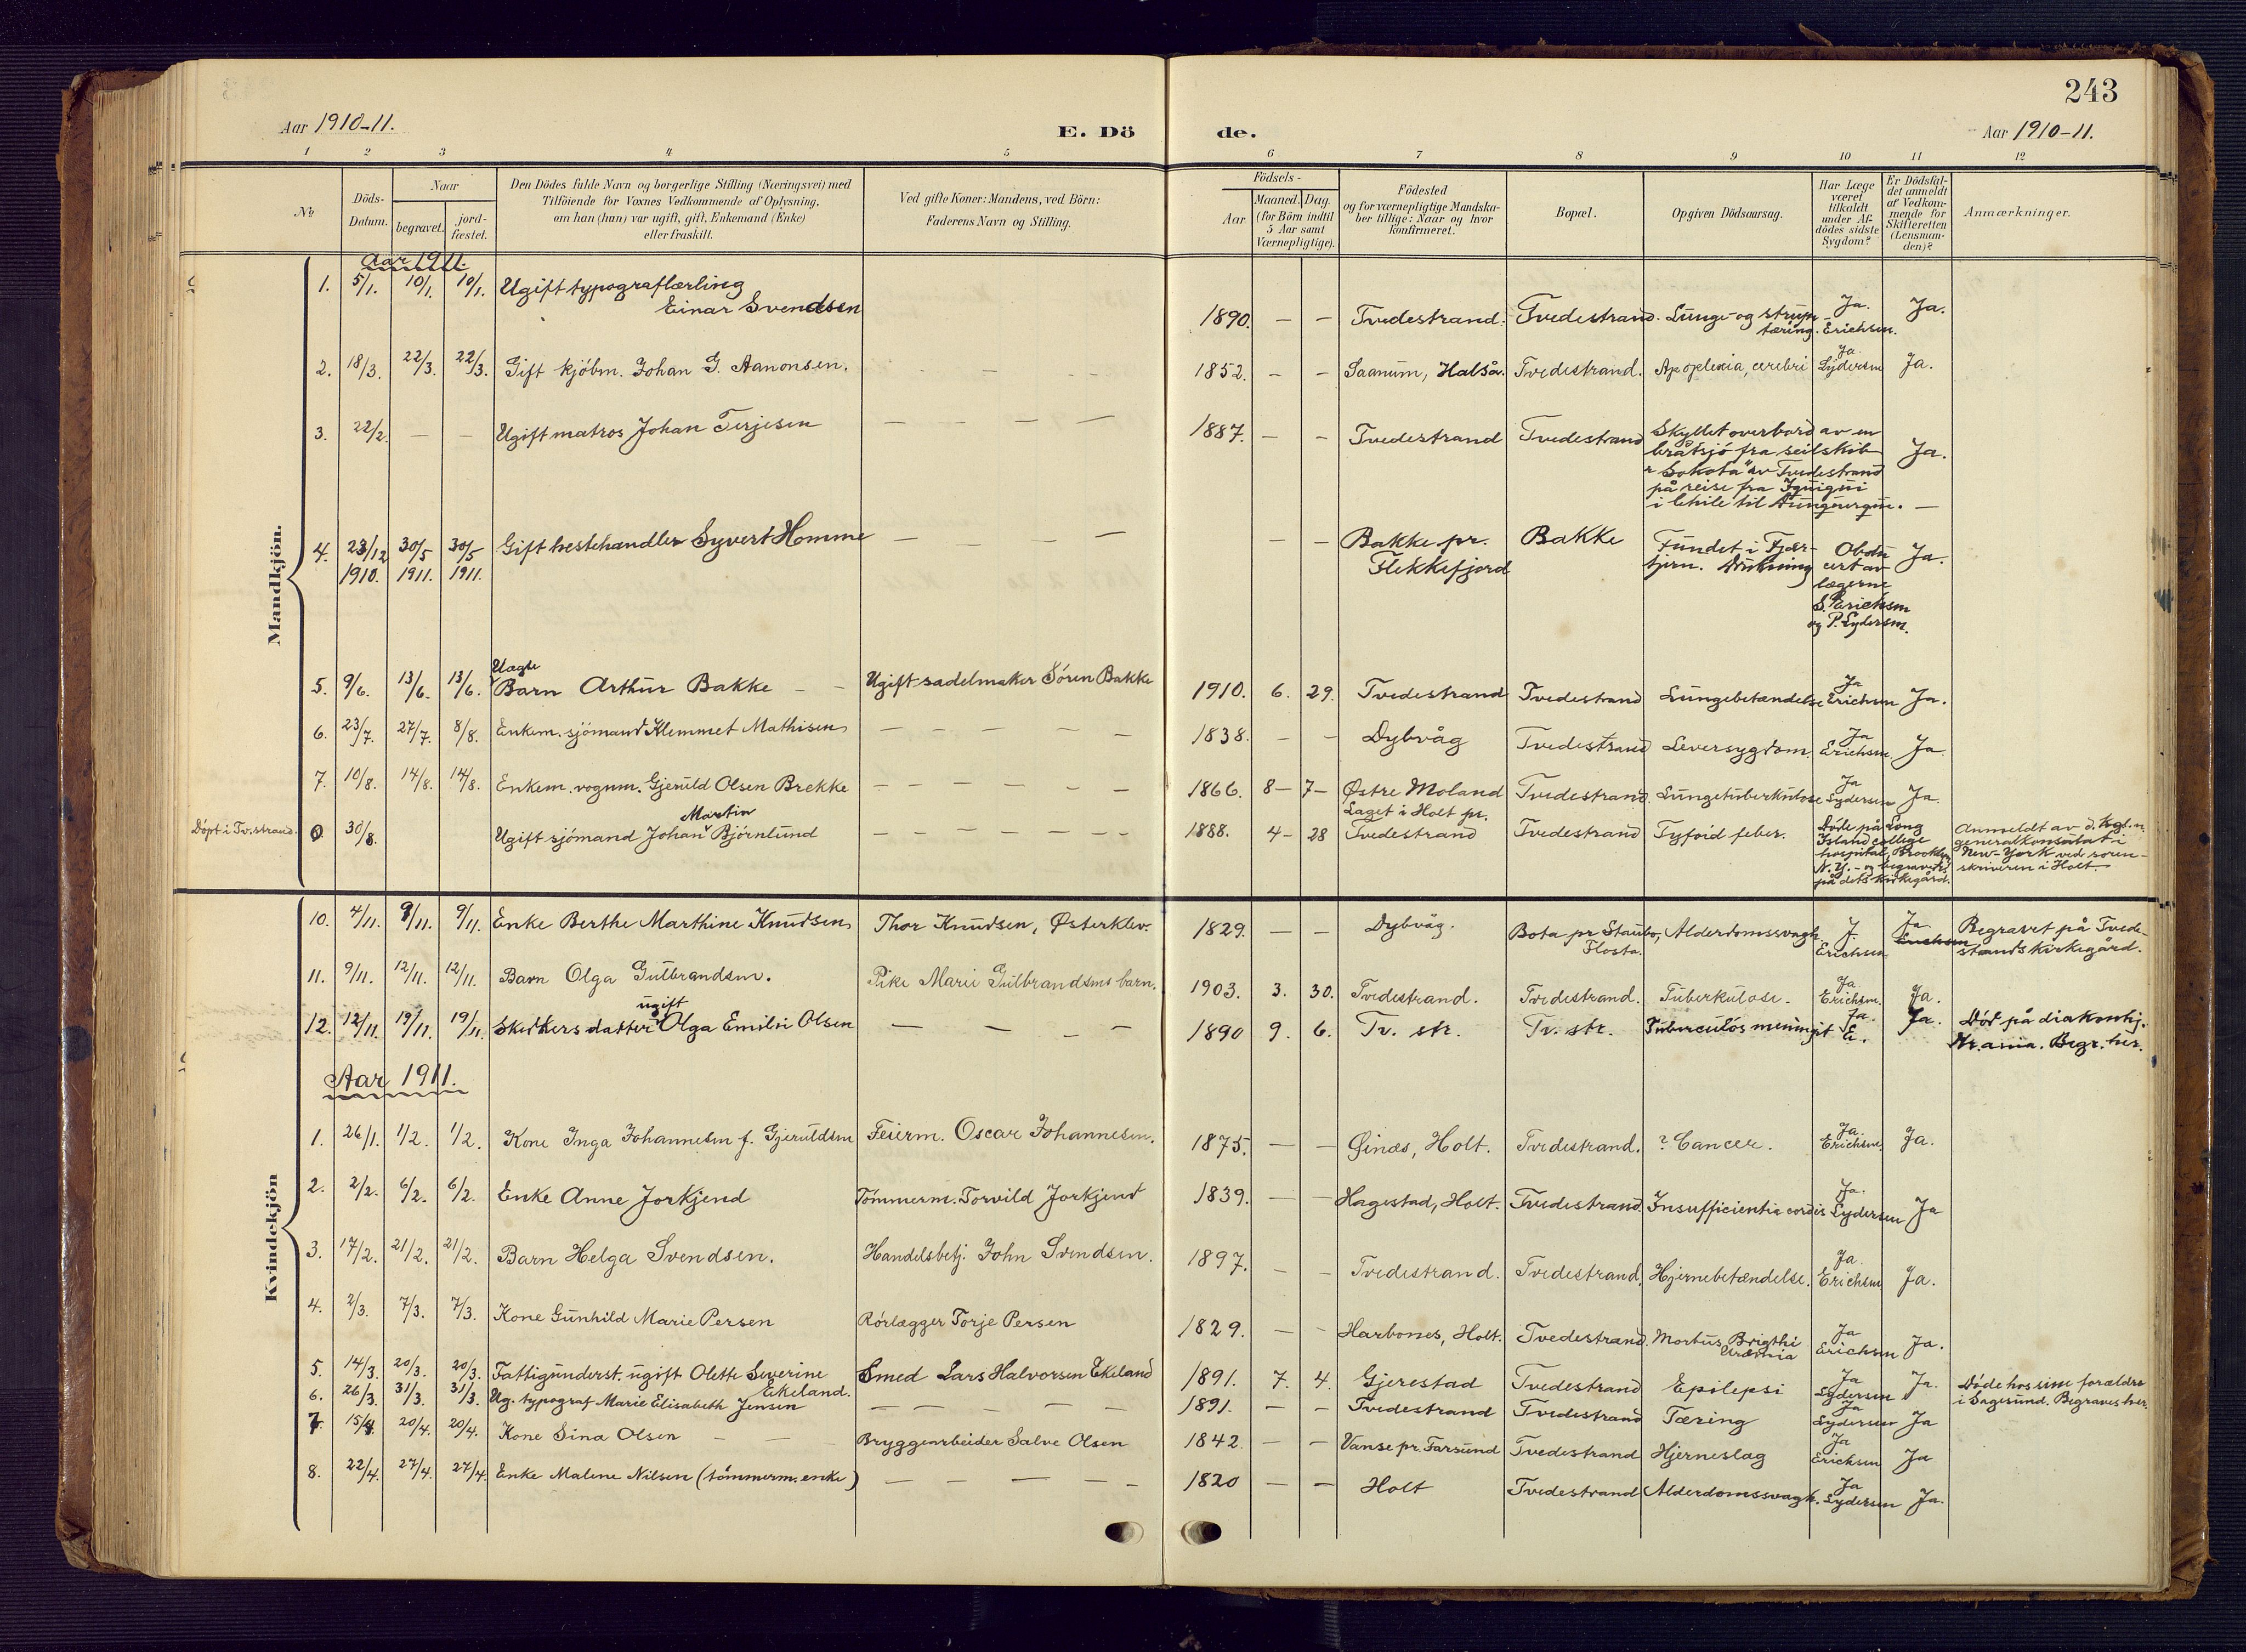 243
Aar 1910-11.
E. Dö
de.
Aar 1910-11.
1 2 3 4 5 6 7 8 9 10 11 12
No
Döds-
Datum.
Naar
begravet.
jord-
fæstet.
Den Dödes fulde Navn og borgerlige Stilling (Næringsvei) med
Tilföiende for Voxnes Vedkommende af Oplysning,
om han (hun) var ugift, gift, Enkemand (Enke)
eller fraskilt.
Ved gifte Koner: Mandens, ved Börn:
Faderens Navn og Stilling.
Födsels-
Aar
Maaned. Dag.
(for Börn indtil
5 Aar samt
Værnepligtige).
Födested
og for værnepligtige Mandska-
ber tillige: Naar og hvor
konfirmeret.
Bopæl.
Opgiven Dödsaarsag.
Har Læge
været
tilkaldt
under Af-
dödes sidste
Sygdom?
Er Dödsfal-
det anmeldt
af Vedkom-
mende for
Skifteretten
(Lensman-
den)?
Anmærkninger.
Mandkjön.
Aar 1911.
1. 5/1. 10/1. 10/1. Ugift typograflærling
Einar Svendsen
1890. — — Tvedestrand. Tvedestrand. Lunge- og strupe-
tæring. Ja. Erichsen. Ja.
2. 18/3. 22/3. 22/3. Gift kjöbm. Johan G. Aanonsen.
1852. — — Saanum, Halså. Tvedestrand. Apoplexia, cerebri Ja Lydersen Ja.
3. 22/2. — — Ugift matros Johan Terjesen — — — — —
1887. — — Tvedestrand Tvedestrand Skyllet overbord av en
bråtsjö fra seilskib
"Sokota" av Tvedestrand
på reise fra
i Chile til Ja.
4. 23/12 30/5 30/5 Gift hestehandler Syvert Homme — — — —
1910. 1911. 1911.
— — Bakke pr.
Flekkefjord
Bakke
Fundet i Fjær-
tjern. Drukning
Obdu
cert av
lægerne
S. Erichsen
og P. Lydersen.
Ja.
5. 9/6. 13/6. 13/6. Uægte
Barn Arthur Bakke — — Ugift sadelmaker Sören Bakke
1910. 6. 29. Tvedestrand Tvedestrand Lungebetændelse Ja Erichsen Ja.
6. 23/7. 27/7. 8/8. Enkem. sjömand Klemmet Mathisen — — — — —
1838. — — Dybvåg Tvedestrand Leversygdom. Ja Erichsen Ja
7. 10/8. 14/8. 14/8. Enkem. vognm. Gjeruld Olsen Brekke — — — — —
1866. 8— 7— Østre Moland Tvedestrand. Lungetuberkulose Ja Lydersen Ja.
Döpt i Tv.strand. 30/8. Ugift sjömand Johan Martin Björnlund — — — — — —
1888. 4— 28 Laget i Holt pr.
Tvedestrand Tvedestrand Tyfoid feber.
Döde på Long
Island college
hospital, Brooklyn
N.Y. - og begravet
på dets kirkegård.
Anmeldt av d. kgl. n.
generalkonsulat i
New-York ved soren-
skriveren i Holt.
Kvindekjön
10. 4/11. 9/11. 9/11. Enke Berthe Marthine Knudsen Thor Knudsen, Østerklev.
1829. — — Dybvåg. Bota pr Staubo,
Flosta. Alderdomssvagh. J. Erichsen Ja Begravet på Tvede-
strands kirkegård.
11. 9/11. 12/11. 12/11. Barn Olga Gulbrandsen. Pike Marie Gulbrandsens barn.
1903. 3. 30. Tvedestrand. Tvedestrand. Tuberkulose. Ja Erichsen. Ja.
12. 12/11. 19/11. 19/11. datter ugift Olga Emilie Olsen — — — —
1890 9. 6. Tv. str. Tv. str. Tuberculös meningit Ja. E. Ja. Död på diakonhj.
Kr.ania. Begr. her.
Aar 1911.
1. 26/1. 1/2. 1/2. Kone Inga Johannesen f. Gjeruldsen Feierm. Oscar Johannesen.
1875. — — Ginæs, Holt. Tvedestrand. ? Cancer. Ja. Erichsen. Ja.
2. 2/2. 6/2. 6/2. Enke Anne Jorkjend Tömmerm. Torvild Jorkjend
1839. — — Hagestad, Holt. Tvedestrand. Insufficientia cordis Ja. Lydersen Ja
3. 17/2. 21/2. 21/2. Barn Helga Svendsen. Handelsbetj. John Svendsen.
1897. — — Tvedestrand. Tvedestrand. Hjernebetændelse. Ja. Erichsen Ja.
4. 2/3. 7/3. 7/3. Kone Gunhild Marie Persen Rörlægger Torje Persen
1829. — — Harbones, Holt. Tvedestrand. Morbus Brigthi
Uræmia Ja Erichsen Ja.
5. 14/3. 20/3. 20/3. Fattigunderst. ugift Olette Severine
Ekeland. Smed Lars Halvorsen Ekeland
1891. 7. 4. Gjerestad Tvedestrand Epilepsi Ja Lydersen Ja. Döde hos sine forældre
i Sagesund. Begraves her.
6. 26/3. 31/3. 31/3. Ug. typograf Marie Elisabeth Jensen — — — — —
1891. — — Tvedestrand Tvedestrand Tæring Ja Lydersen Ja
7. 15/4. 20/4. 20/4. Kone Sina Olsen — — — Bryggearbeider Salve Olsen
1842. — — Vanse pr. Farsund Tvedestrand Hjerneslag Ja Erichsen Ja
8. 22/4. 27/4. 27/4. Enke Malene Nilsen (tömmerm. enke) — — — — —
1820 — — Holt Tvedestrand Alderdomssvagh. Ja Lydersen Ja.